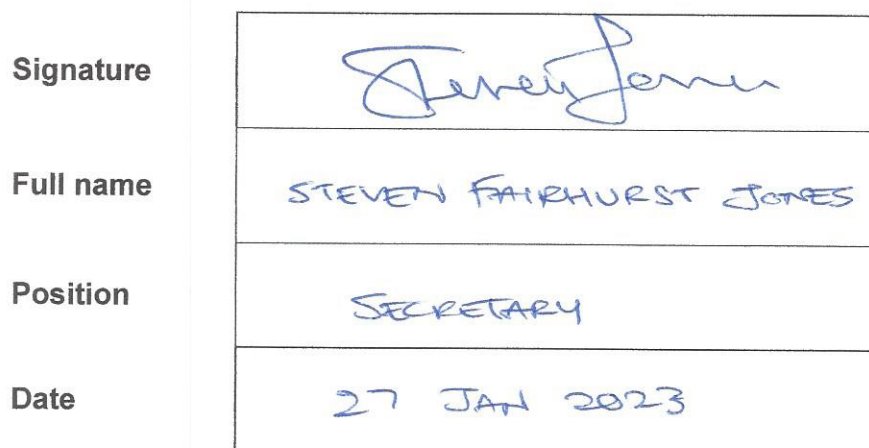 Signature Steven Jones
Full name STEVEN FAIRHURST JONES
Position SECRETARY
Date 27 JAN 2023